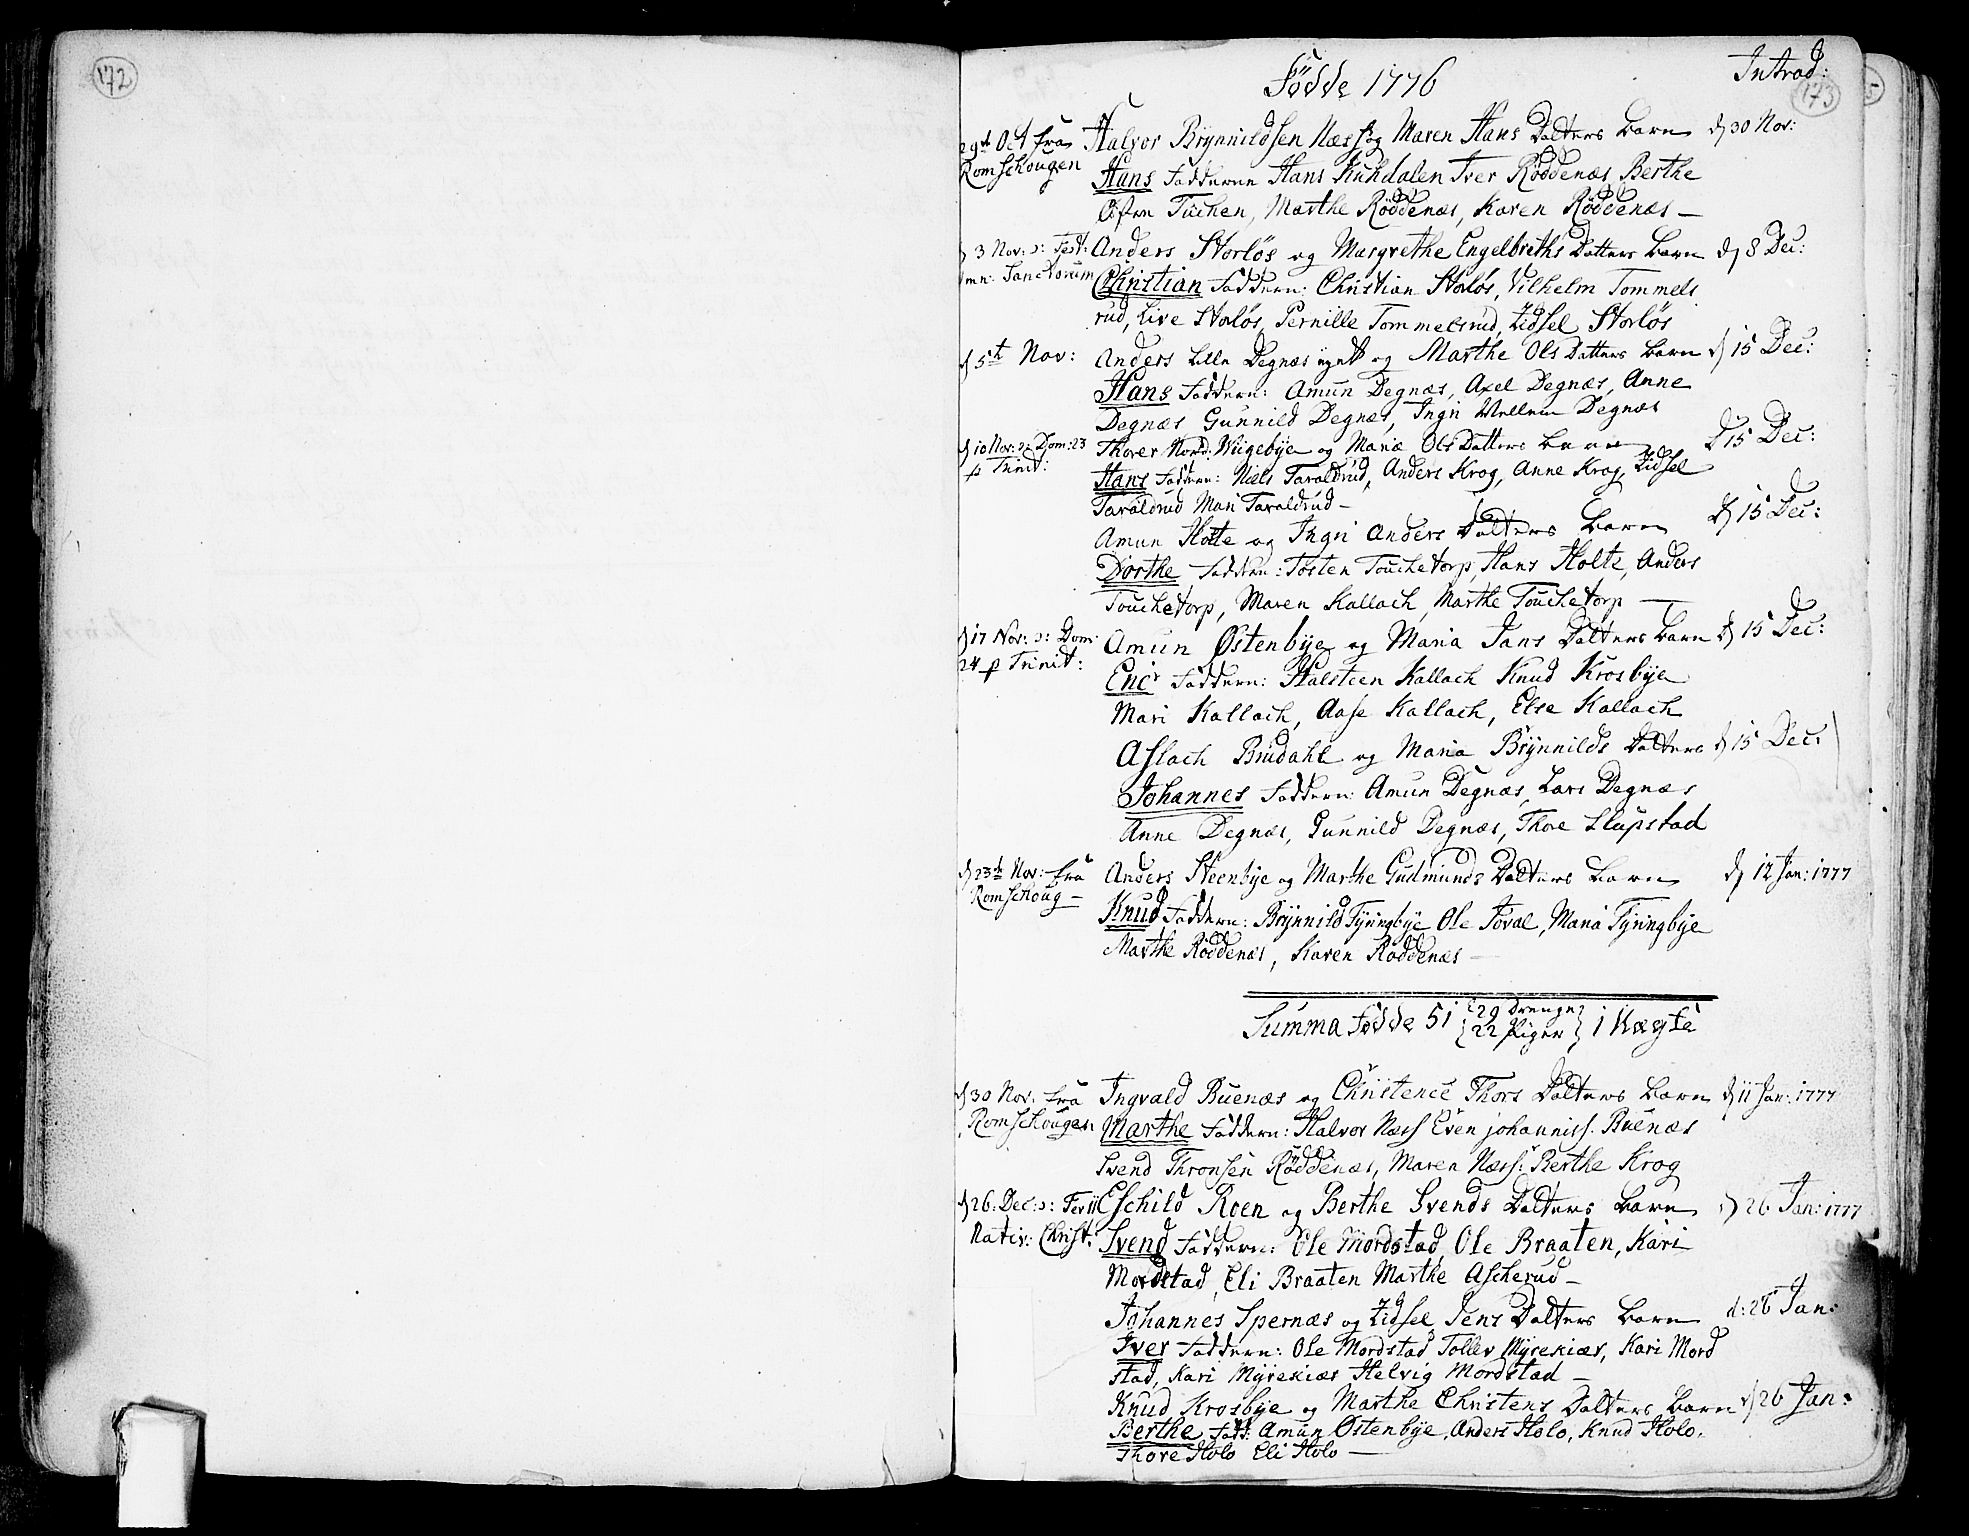 172
Födde 1776
Introd:
173
29de Oct fra Halvor Brynnildsen Næss og Maren Hans Datters barn d 30 Nov:
Romschougen Hans Fadderne Hans Kuhdalen Iver Röddenæs Berthe
Tuchen, Marthe Röddenæs, Karen Röddenæs —
d 3 Nov: ɔ: Fest: Anders Storløs og Margrethe Engelbreths Datters barn d 8 Dec:
Omn: Sanctorum Christian Faddern: Christian Storløs, Vilhelm Tommels
rud, Live Storløs, Pernille Tommelsrud, Zidsel Storløs
d 5te Nov: Anders Lille Degnæs og Marthe Ols Datters barn d 15 Dec:
Hans Faddern: Amun Degnæs, Axel Degnæs, Anne
Degnæs Gunnild Degnæs, Ingri Mellem Degnæs
d 10 Nov: ɔ: Dom: 23 Thorer Nord: Wiigebye og Mariæ Ols Datters barn d 15 Dec:
p Trinit: Hans Faddern: Niels Taraldrud, Anders Krog, Anne Krog, Zidsel
Taraldrud Mari Taraldrud —
Amun Holte og Ingri Anders Datters barn d 15 Dec:
Dorthe Faddern: Tosten Touchetorp, Hans Holte, Anders
Touchetorp, Maren Kallach, Marthe Touchetorp —
d 17 Nov: ɔ: Dom: Amun Østenbye og Maria Jans Datters barn d 15 Dec:
24 p Trinit: Eric Faddern: Halsteen Kallach Knud Krosbye
Mari Kallach, Aase Kallach, Else Kallach
Aslach Brudahl og Maria Brynnilds Datters d 15 Dec:
Johannes Faddern: Amun Degnæs, Lars Degnæs
Anne Degnæs, Gunnild Degnæs, Thore Slupstad
d 23de Nov: fra Anders Steenbye og Marthe Gudmunds Datters barn d 12 Jan: 1777
Romschoug — Knud Faddern: Brynnild Tyringbye Ole Toval, Maria Tyringbye
Marthe Röddenæs, Karen Röddenæs —
Summa Fødde 51 { 29 Drenge } 1 Uægte
{ 22 Piger }
d 30 Nov. fra Ingvald Buenæs og Christence Thors Datters barn d 11 Jan: 1777
Romschougen Marthe Faddern: Halvor Næss Even johanniss. Buenæs
Svend Thronsen Röddenæs, Maren Næss: Berthe Krog
d 26. Dec: ɔ: Fer II Eschild Roen og Berthe Svends Datters barn d 26 Jan: 1777
Nativ: Christ: Svend Faddern: Ole Mordstad, Ole Braaten, Kari
Mordstad, Eli Braaten Marthe Ascherud —
Johannes Spernæs og Zidsel Jens Datters barn d: 26 Jan:
Iver Faddern: Ole Mordstad Tollev Myrekiær, Kari Mord
stad, Kari Myrekiær Helvig Mordstad —
Knud Krosbye og Marthe Christens Datters barn d 26 Jan:
Berthe Fadd: Amun Østenbye, Anders Holo, Knud Holo,
Thore Holo Eli Holo —